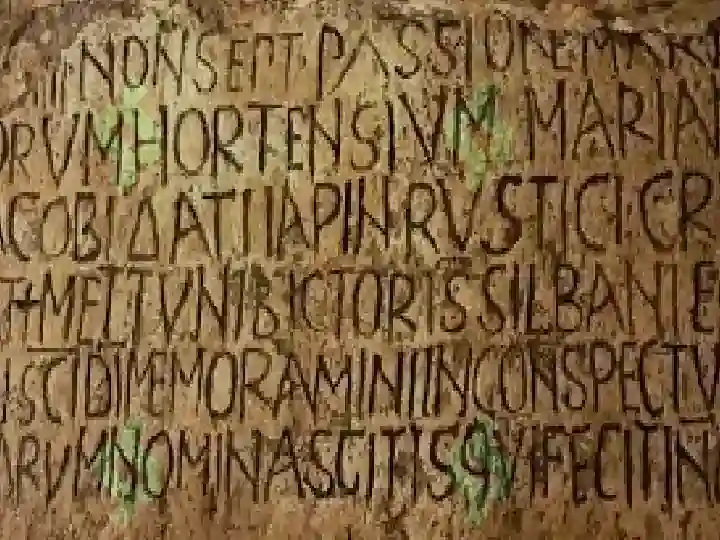 IIII NONSEPT PASSIONEMART
ORVM HORTENSIVM MARIAN
ACOBI DATI IAPIN RVSTICI CR
T+METTVNI BICTORIS SILBANI E
I SCI DI MEMORAMINI IN CONSPECTV
ARVM NOMINA SCITIS QVI FECIT IN